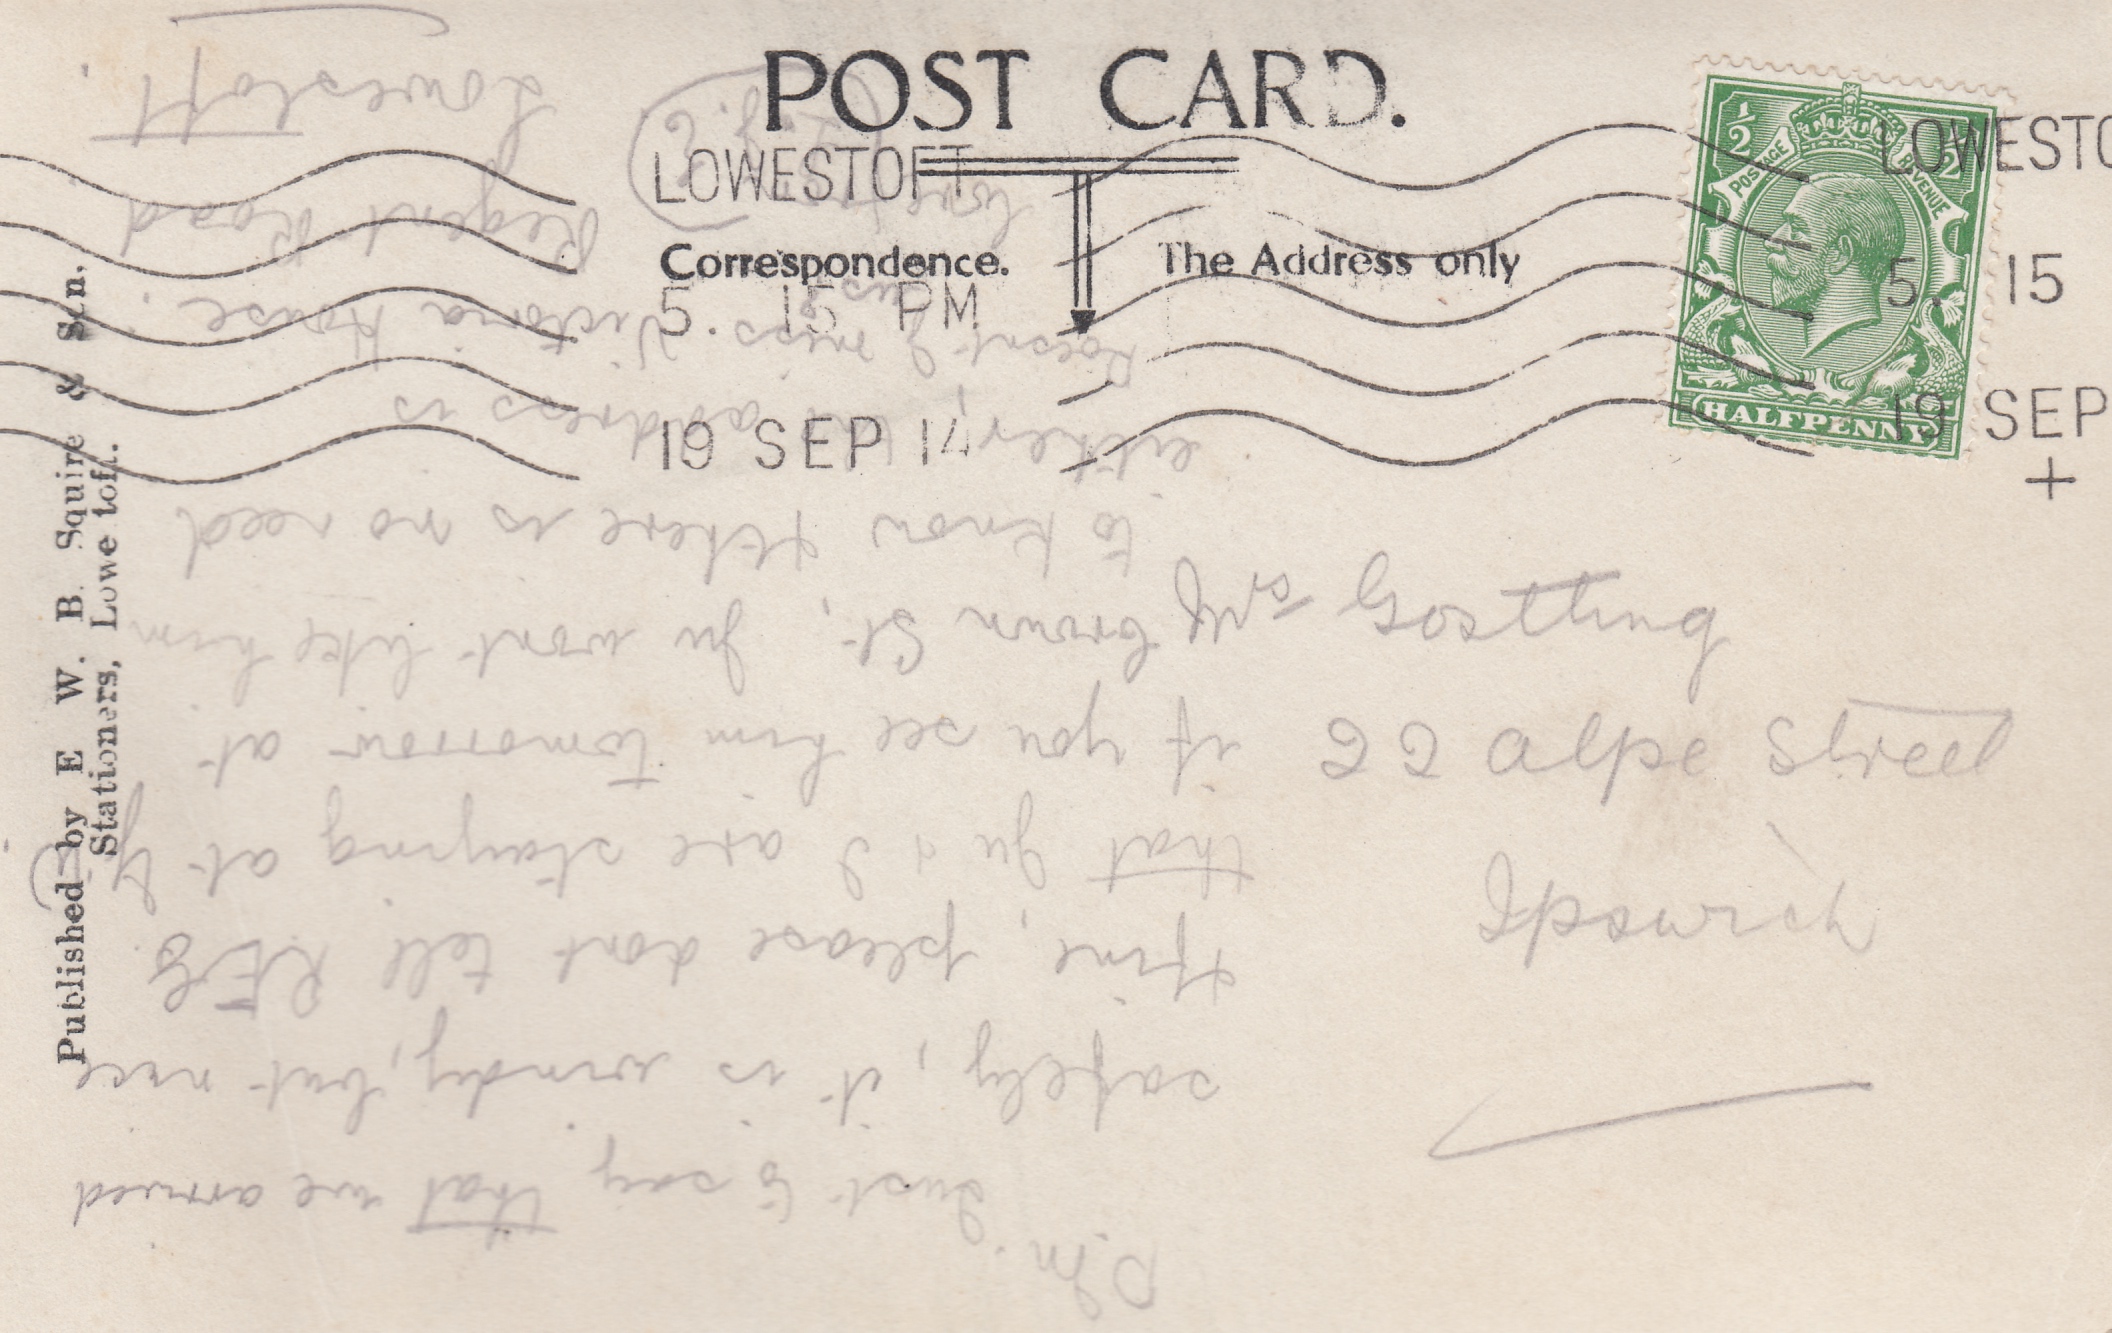 POST CARD.
LOWESTOFT
5. 15 PM
19 SEP 14
Correspondence.
The Address only
½ ½
POSTAGE REVENUE
HALFPENNY
LOWESTO
5. 15
19 SEP
+
Published by E W. B. Squire & Son.
Stationers, Lowe toft.
Gostling
22 Alpe Street
Ipswich
D.M.
Just to say that we arrived
safely, it is windy, but nice
& fine, please dont tell REG
that Ju & I are staying at
if you see him tomorrow at
brown St, Ju wont like him
to know & there is no need
either, address is
Miss Victoria House.
Regent Road
Lowestoft.